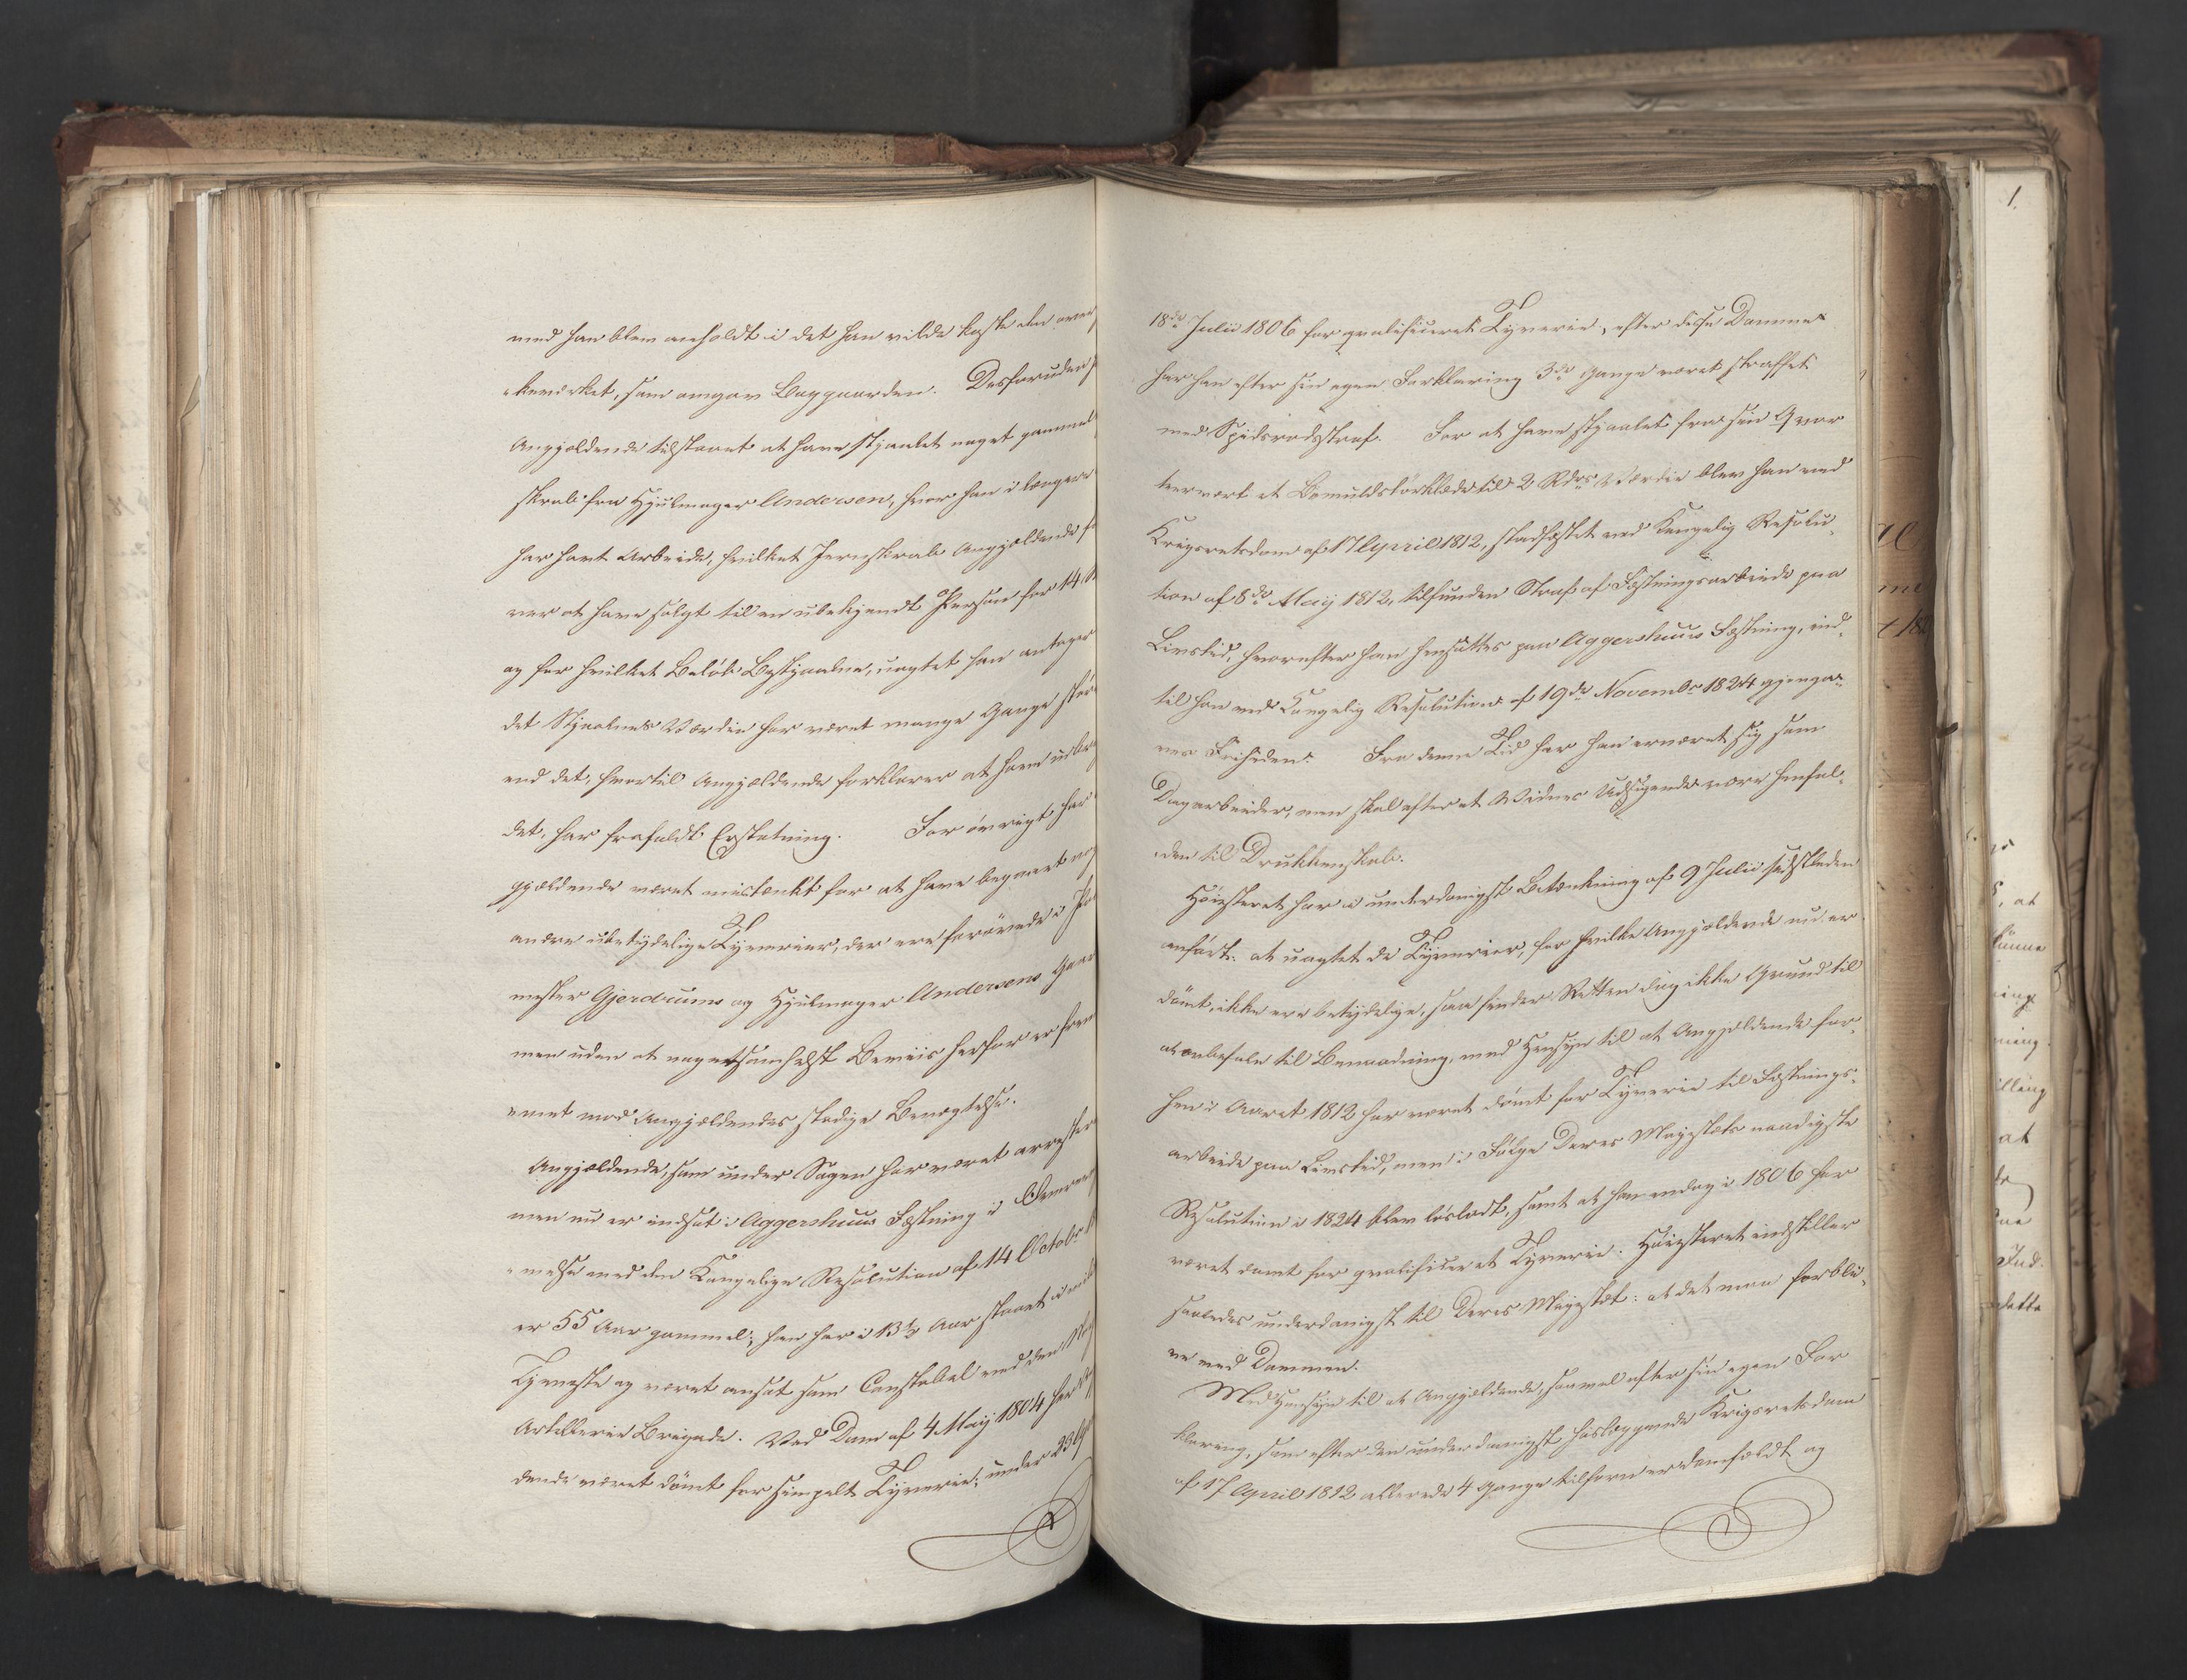 med han blev anholdt i det han vilde kaste den over
-keværket, som omgav Baggaarden. Desforuden
Angjældende tilstaaet at have stjaalet noget gammelt
skrab fra Hjulmager Andersen, hvor han i længere
har havt Arbeide, hvilket Jernskrab Angjældende
ver at have solgt til en ubekjendt Person for 14
og for hvilket Beløb Bestjaalne, uagtet han antager
det Stjaalnes Værdie har været mange Gange større
end det, hvortil Angjældende forklarer at have
det, har frafaldt Erstatning. For øvrigt har
gjældende været mistænkt for at have begaaet
andre ubetydelige Tyverier, der ere forøvede i
mester Gjerdrums og Hjulmager Andersens
men uden at nogetsomhelst Beviis herfor er frem
-met mod Angjældendes stadige Benægtelse.
Angjældende, som under Sagen har været arresteret
men nu er indsat i Aggershuus Fæstning i Overeens
-melse med den Kongelige Resolution af 14 Octobr
er 55 Aar gammel; han har i 13½ Aar staaet i
Tjeneste og været ansat som Constabel ved den
Artillerie Brigade. Ved Dom af 4 Maij 1804 har
dende været dömt for simpelt Tyverie; under 23
18de Julii 1806 for qvalificeret Tyverie, efter disse Domme
har han efter sin egen Forklaring 3de Gange været straffet
med Spidsrodsstraf. For at have stjaalet fra sin Qvar
teervært et Bomuldstörklæde til 2 Rdrs Værdie blev han ved
Krigsretsdom af 17 April 1812, stadfæstet ved Kongelig Resolu-
tion af 8de Maij 1812, tilfunden Straf af Fæstningsarbeide paa
Livstid, hvorefter han hensattes paa Aggershuus Fæstning, ind-
til han ved Kongelig Resolution af 19de Novembr 1824 gjenga-
ves Friheden. Fra denne Tid har han ernæret sig som
Dagarbeider, men skal efter et Vidnes Udsigende være henfal-
-den til Drukkenskab.
Höiesteret har i underdanigst Betænkning af 9 Julii sidstleden
anfört: at uagtet de Tyverier, for hvilke Angjældende nu er
dömt, ikke ere betydelige, saa finder Retten dog ikke Grund til
at anbefale til Benaadning, med Hensyn til at Angjældende for-
hen i Aaret 1812 har været dömt for Tyverie til Fæstnings-
arbeide paa Livstid, men i Fölge Deres Majestæts naadigste
Resolution i 1824 blev lösladt, samt at han endog i 1806 har
været dömt for qvalificeret Tyverie. Höiesteret indstiller
saaledes underdanigst til Deres Majestæt: at det maa forbli-
ve ved Dommen.
Med Hensyn til at Angjældende, saavel efter sin egen For
klaring, som efter den underdanigst hoslæggende Krigsretsdom
af 17 April 1812 allerede 4 Gange tilforn er domfældt og
1.